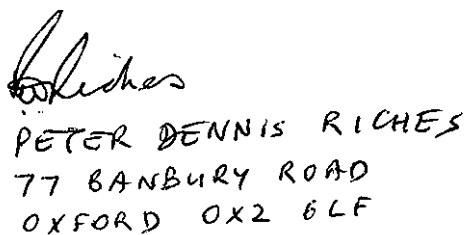 PDRiches
PETER DENNIS RICHES
77 BANBURY ROAD
OXFORD OX2 6LF